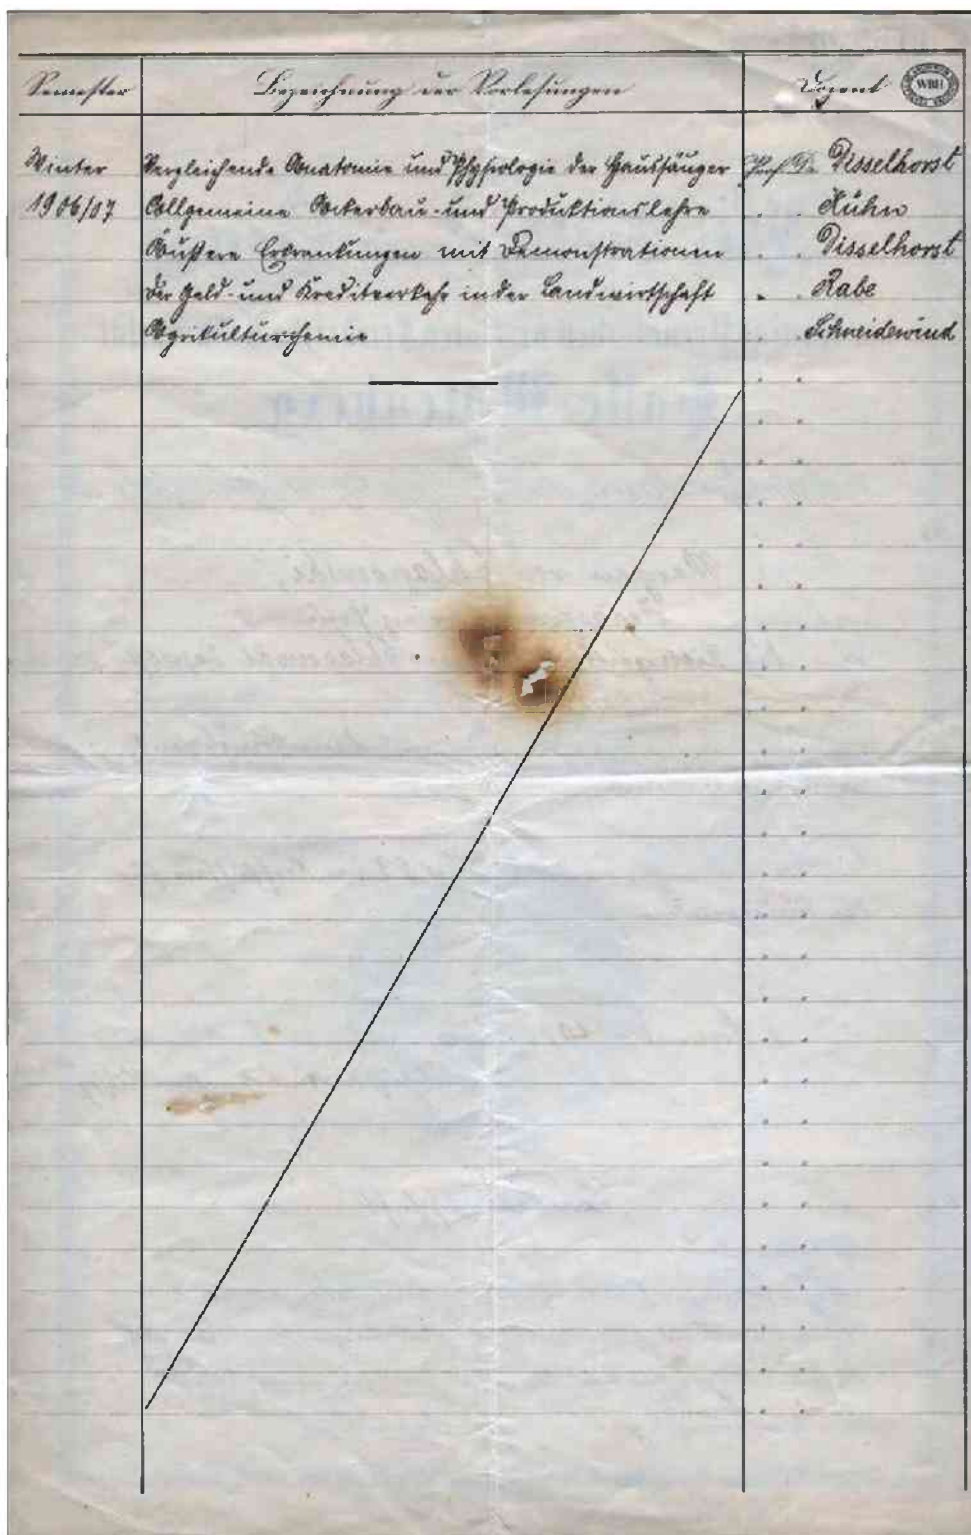 Semester Bezeichnung der Vorlesungen Dozent
WBH
Winter Vergleichende Anatomie und Physiologie der Haussäuger Prof. Dr. Disselhorst
1906/07 Allgemeine Ackerbau- und Produktionslehre " " Kühn
Äußere Erkrankungen mit Demonstrationen " " Disselhorst
Der Geld- und Kreditverkehr in der Landwirtschaft " " Rabe
Agrikulturchemie " Schneidewind